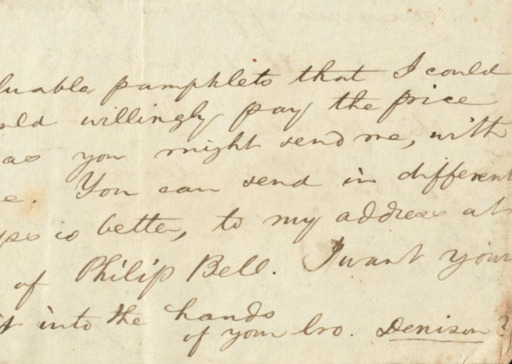 luable pamphlets that I could
uld willingly pay the price
as you might send me, with
e. You can send in different
ps is better, to my address at
of Philip Bell. I want your
t into the hands
of your bro. Denison?